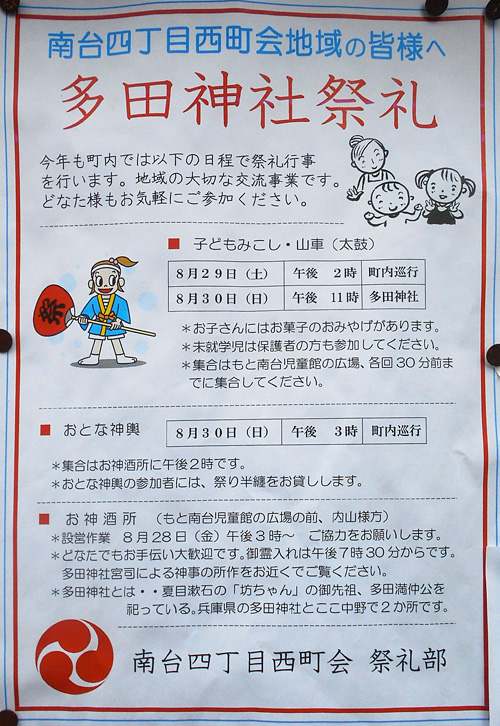 南台四丁目西町会地域の皆様へ
多田神社祭礼
今年も町内では以下の日程で祭礼行事
を行います。地域の大切な交流事業です。
どなた様もお気軽にご参加ください。
■ 子どもみこし・山車（太鼓）
祭
8月29日（土） 午後 2時 町内巡行
8月30日（日） 午後 11時 多田神社
＊お子さんにはお菓子のおみやげがあります。
＊未就学児は保護者の方も参加してください。
＊集合はもと南台児童館の広場、各回30分前ま
でに集合してください。
■ おとな神輿 8月30日（日） 午後 3時 町内巡行
＊集合はお神酒所に午後2時です。
＊おとな神輿の参加者には、祭り半纏をお貸しします。
■ お神酒所 （もと南台児童館の広場の前、内山様方）
＊設営作業 8月28日（金）午後3時～ ご協力をお願いします。
＊どなたでもお手伝い大歓迎です。御霊入れは午後7時30分からです。
多田神社宮司による神事の所作をお近くでご覧ください。
＊多田神社とは・・夏目漱石の「坊ちゃん」の御先祖、多田満仲公を
祀っている。兵庫県の多田神社とここ中野で2か所です。
南台四丁目西町会 祭礼部